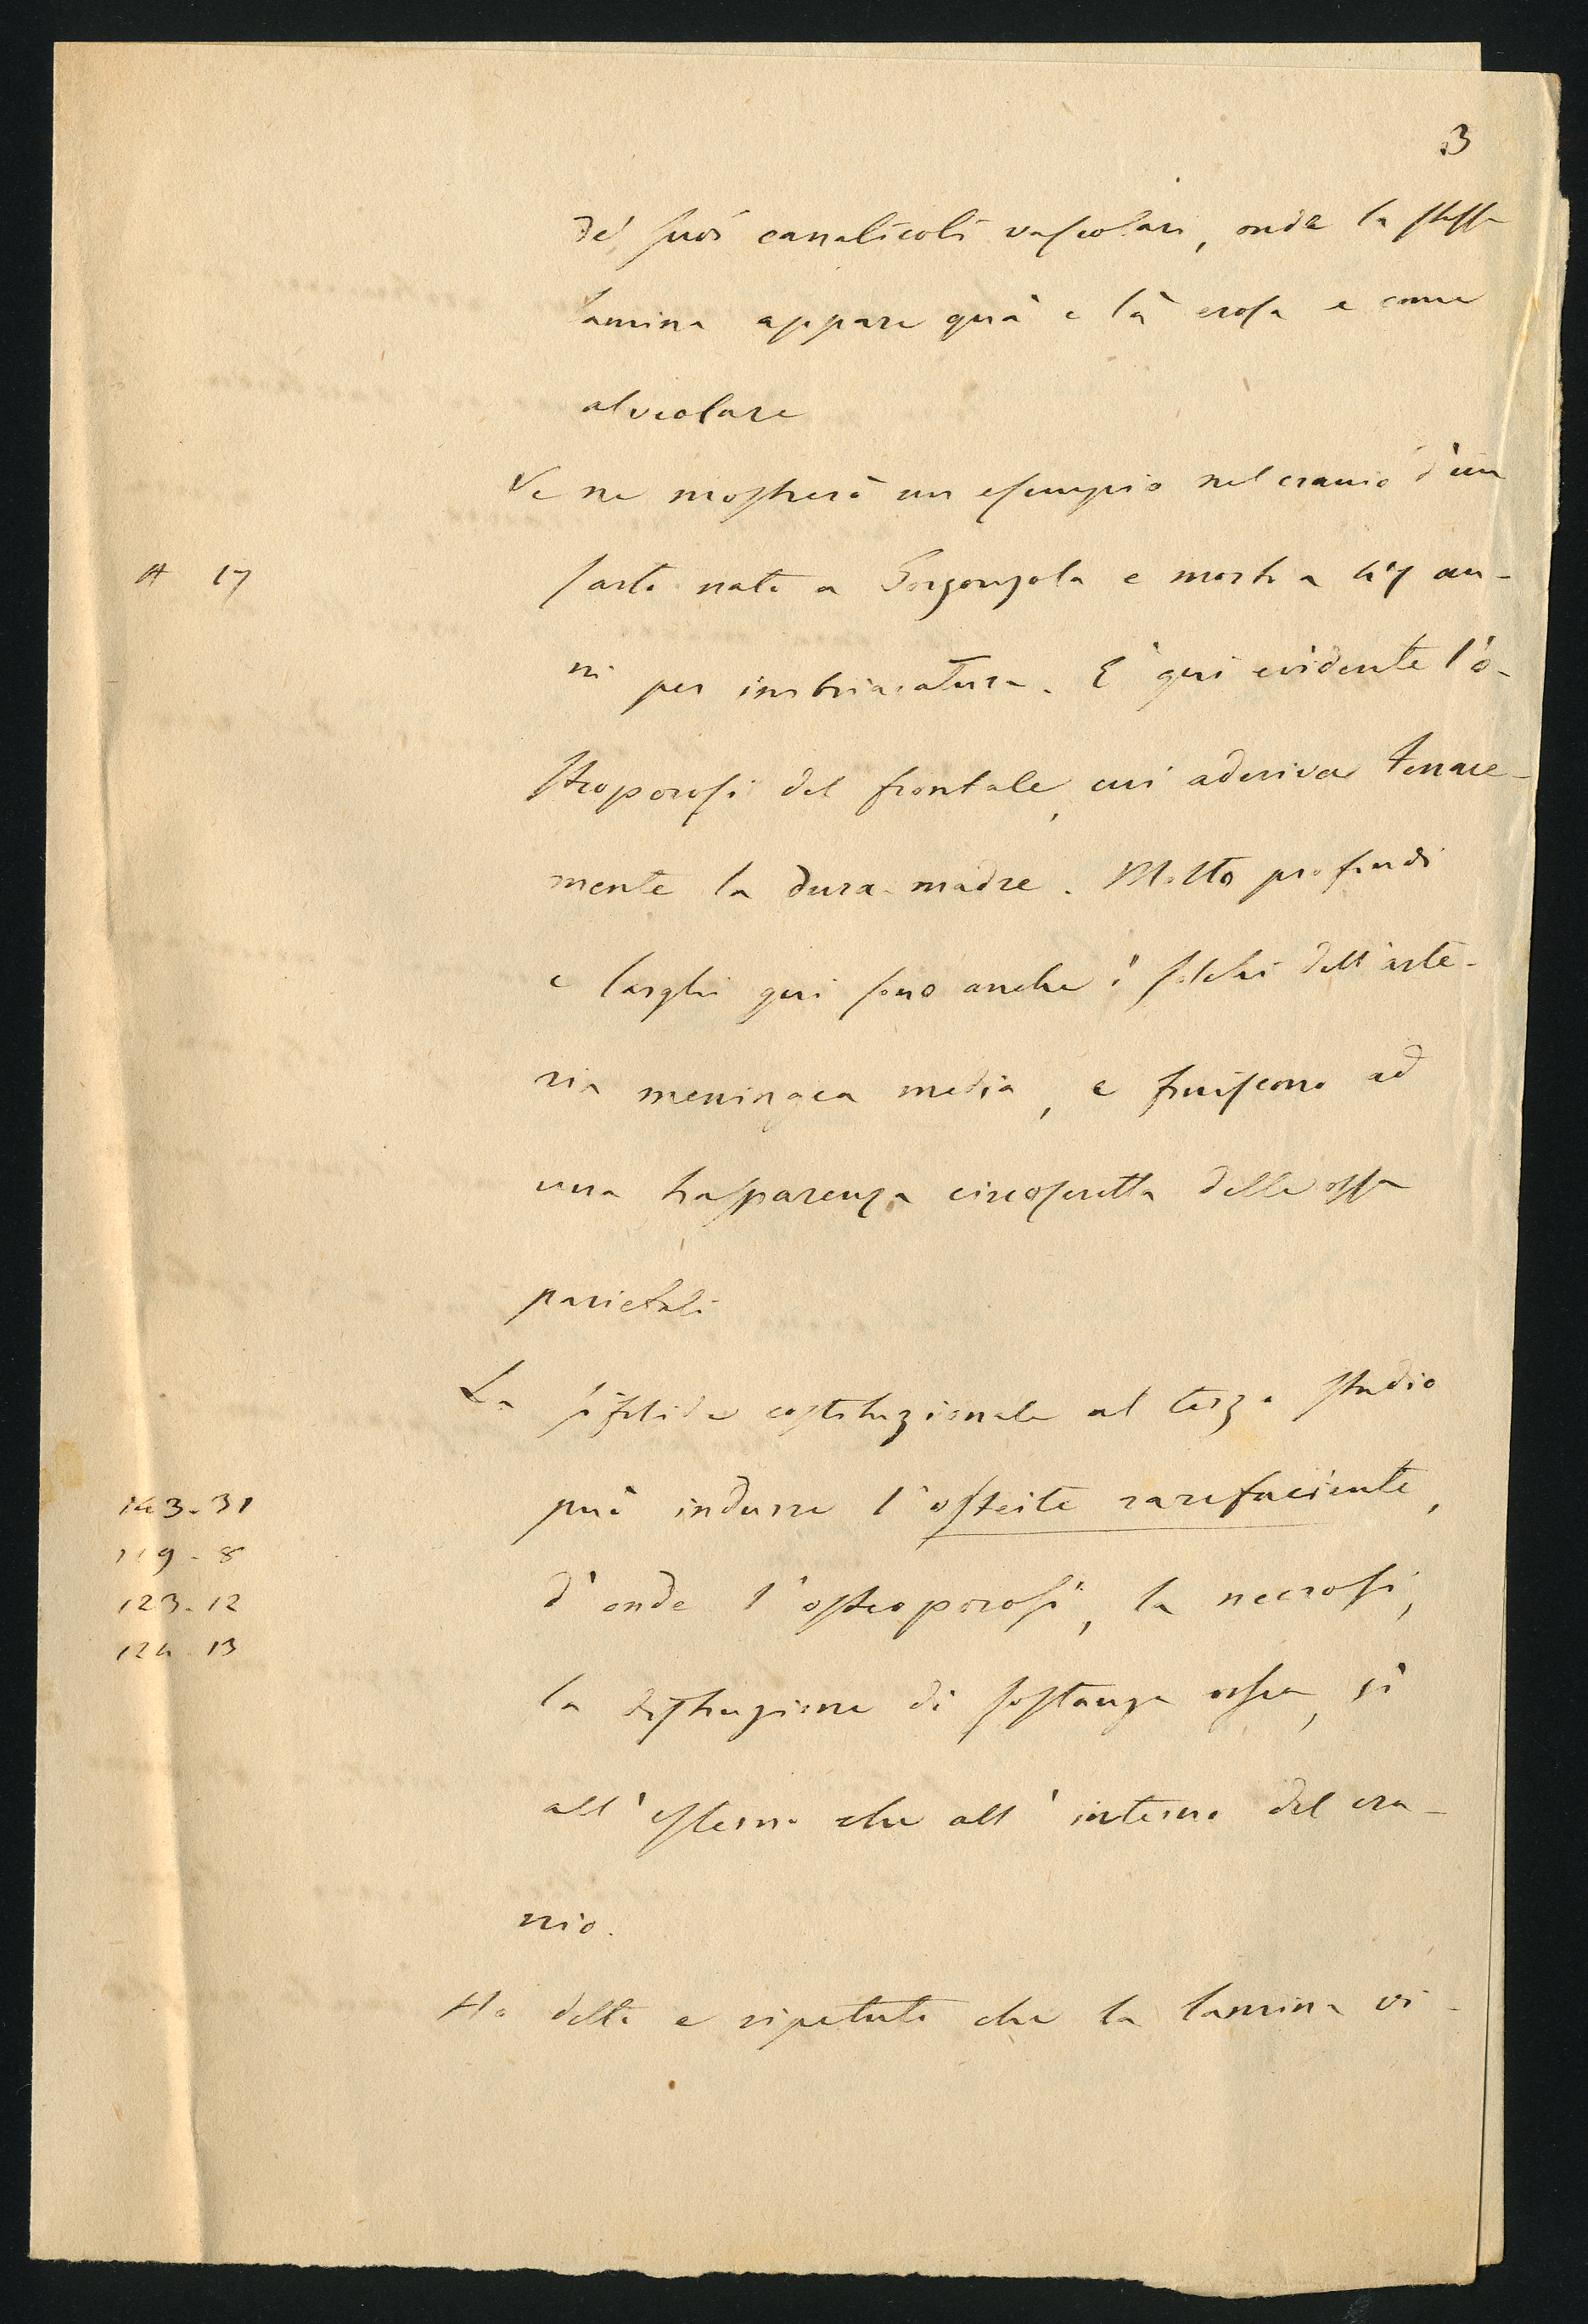 3
de' suoi canalicoli vascolari, onde la stessa
lamina appare quà e là erosa e come
alveolare
Ve ne mostrerò un esempio nel cranio d'un
# 17
sarto nato a Gorgonzola e morto a 47 an-
ni per imbriacatura. È qui evidente l'o-
steoporosi del frontale, cui aderiva tenace-
mente la dura madre. Molto profondi
e larghi qui sono anche i solchi dell'arte-
ria meningea media, e finiscono ad
una trasparenza circoscritta delle ossa
parietali
La sifilide costituzionale al terzo stadio
143-31
può indurre l'osteite rarefaciente,
119-8
d'onde l'osteoporosi, la necrosi,
123-12
124-13
la distruzione di sostanza ossea, sì
all'esterno che all'interno del cra-
nio.
Ho detto e ripetuto che la lamina vi-